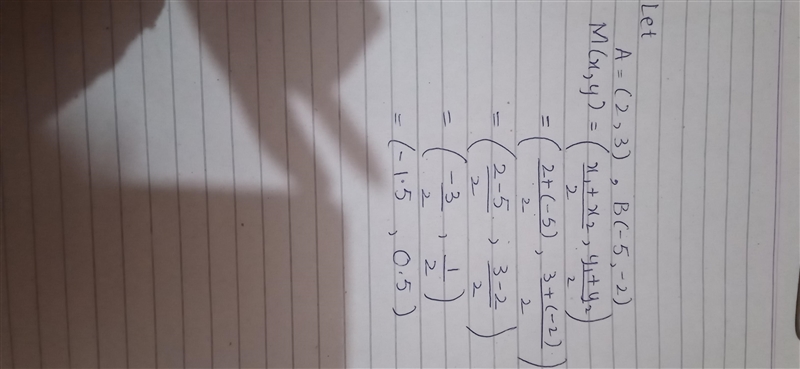 Let
A = (2, 3), B(-5, -2)
M(x, y) = ( x₁+x₂ / 2 , y₁+y₂ / 2 )
= ( 2+(-5) / 2 , 3+(-2) / 2 )
= ( 2-5 / 2 , 3-2 / 2 )
= ( -3 / 2 , 1 / 2 )
= (-1.5 , 0.5)